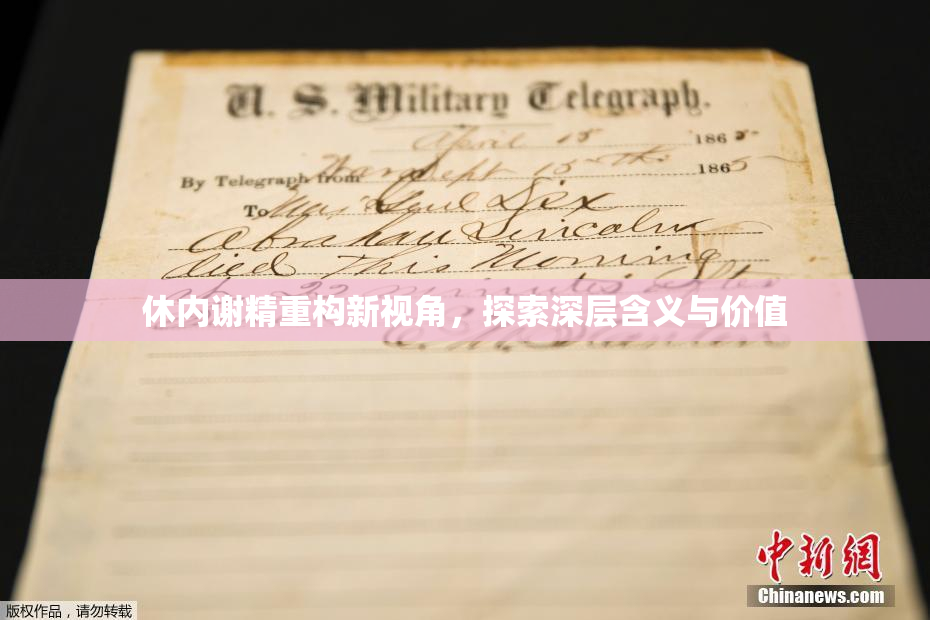 U. S. Military Telegraph.
April 15 1865
By Telegraph from War Dept 15th 1865
To Maj Genl Dix
Abraham Lincoln
died This Morning
22 minutes after
休内谢精重构新视角，探索深层含义与价值
中新网
Chinanews.com
版权作品，请勿转载